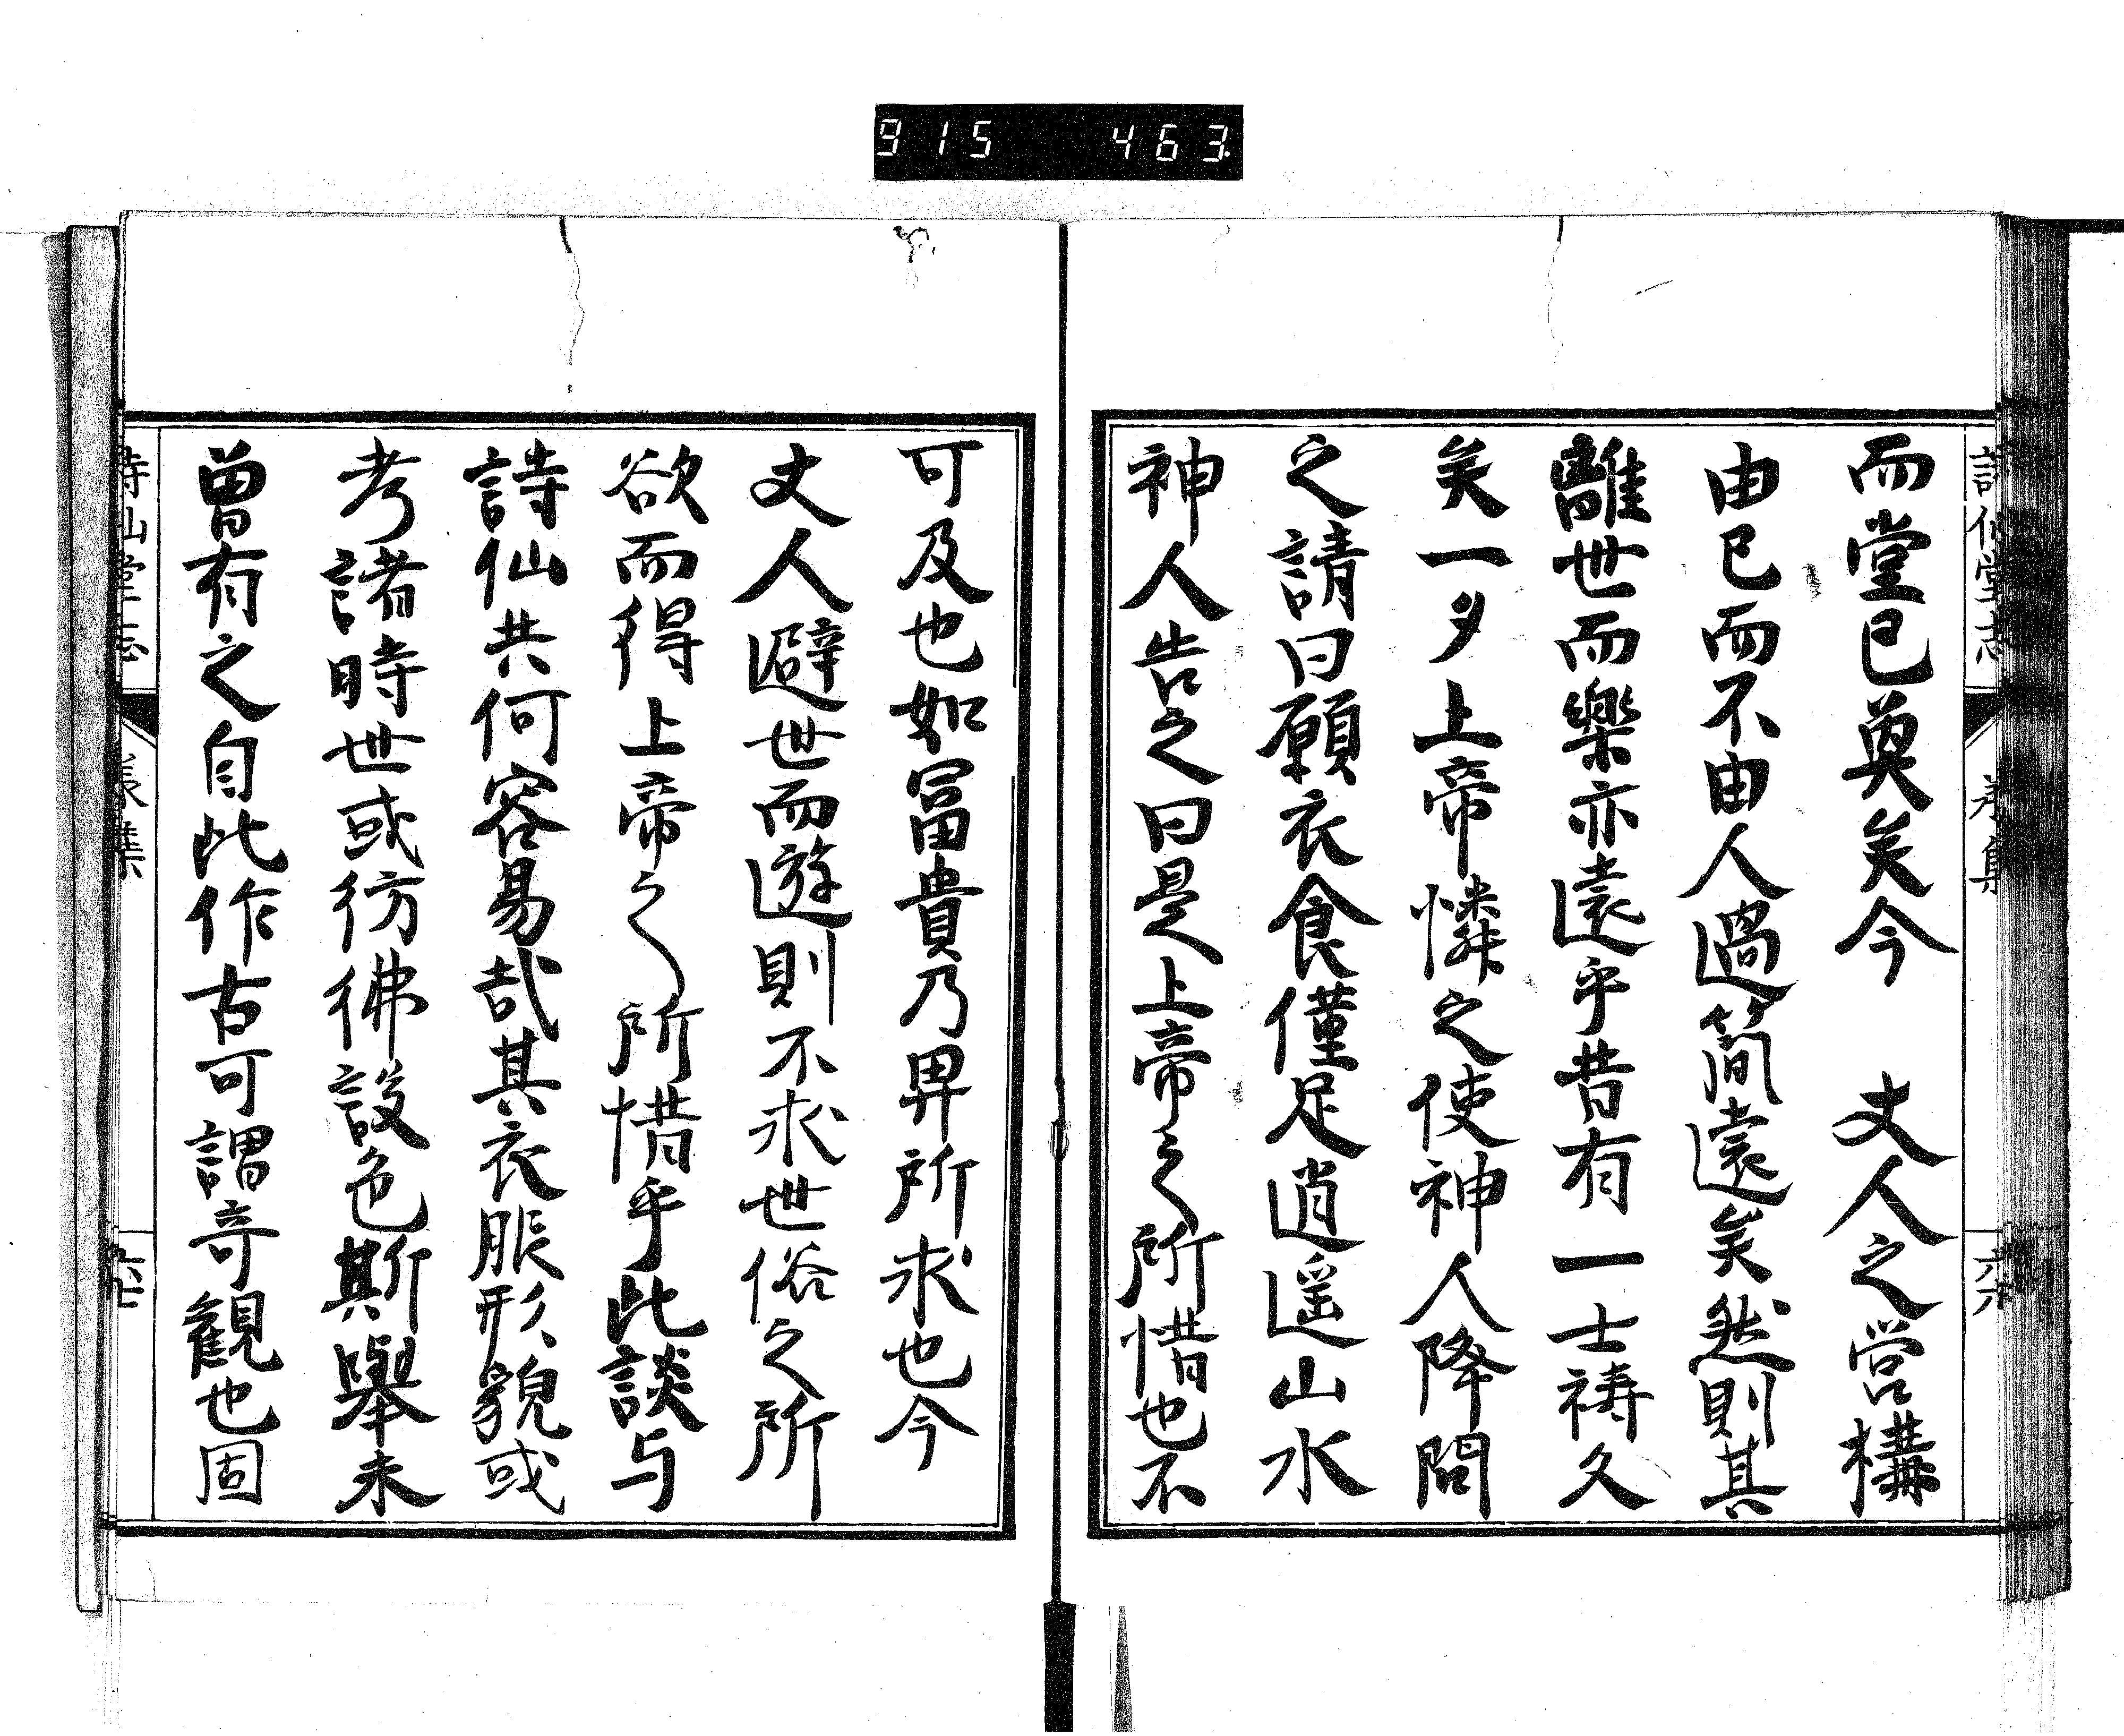 915 463
而堂已奠矣今 丈人之営構
由已而不由人過簡遠矣然則其
離世而樂亦遠乎昔有一士祷久
矣一夕上帝憐之使神人降問
之請曰願衣食僅足逍遥山水
神人告之曰是上帝之所惜也不
可及也如冨貴乃畀所求也今
丈人避世而遊則不求世俗之所
欲而得上帝之所惜乎此談与
詩仙共何容易哉其衣服形貌或
考諸時世或彷彿設色斯舉未
曾有之自此作古可謂奇観也固